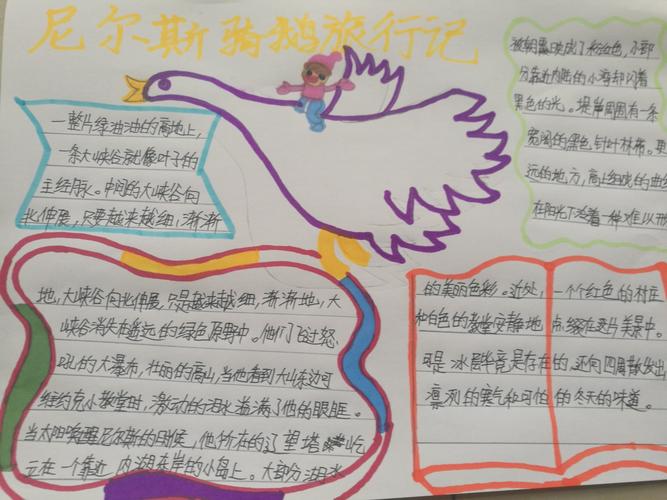 尼尔斯骑鹅旅行记
一整片绿油油的高地上,
一条大峡谷就像叶子的
主经脉。中间的大峡谷向
北伸展,只要越来越细,渐渐
地,大峡谷向北伸展,只是越来越细,渐渐地,大
峡谷消失在遥远的绿色原野中。他们飞过怒
吼的大瀑布,壮丽的高山,当他看到大山东边河
纽约克小教堂时,激动的泪水溢满了他的眼眶。
当太阳唤醒尼尔斯的时候,他所在的辽望塔屹
立在一个靠近内湖东岸的小岛上。大部分湖水
被朝霞映成了粉红色,小部
分靠近内陆的小湾却闪着
黑色的光。堤岸周围有一条
宽阔的黑色针叶林带。更
远的地方,高山细线的曲
在阳光下泛着一种难以形
的美丽色彩。近处,一个红色的村庄
和白色的教堂安静地点缀在这片美景中。
可是冰层毕竟是存在的,还向四周散发出
凛冽的寒气和可怕的冬天的味道。